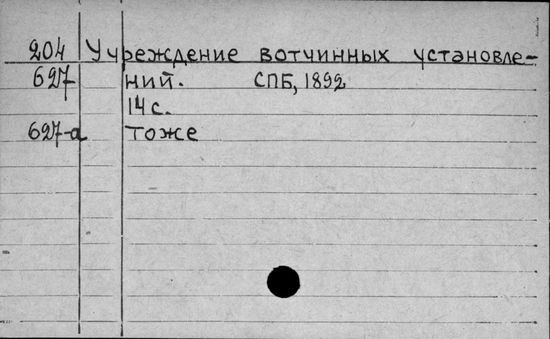 204 Учреждение вотчинных установле-
627 ний. СПБ, 1892
14 с.
627-а тоже